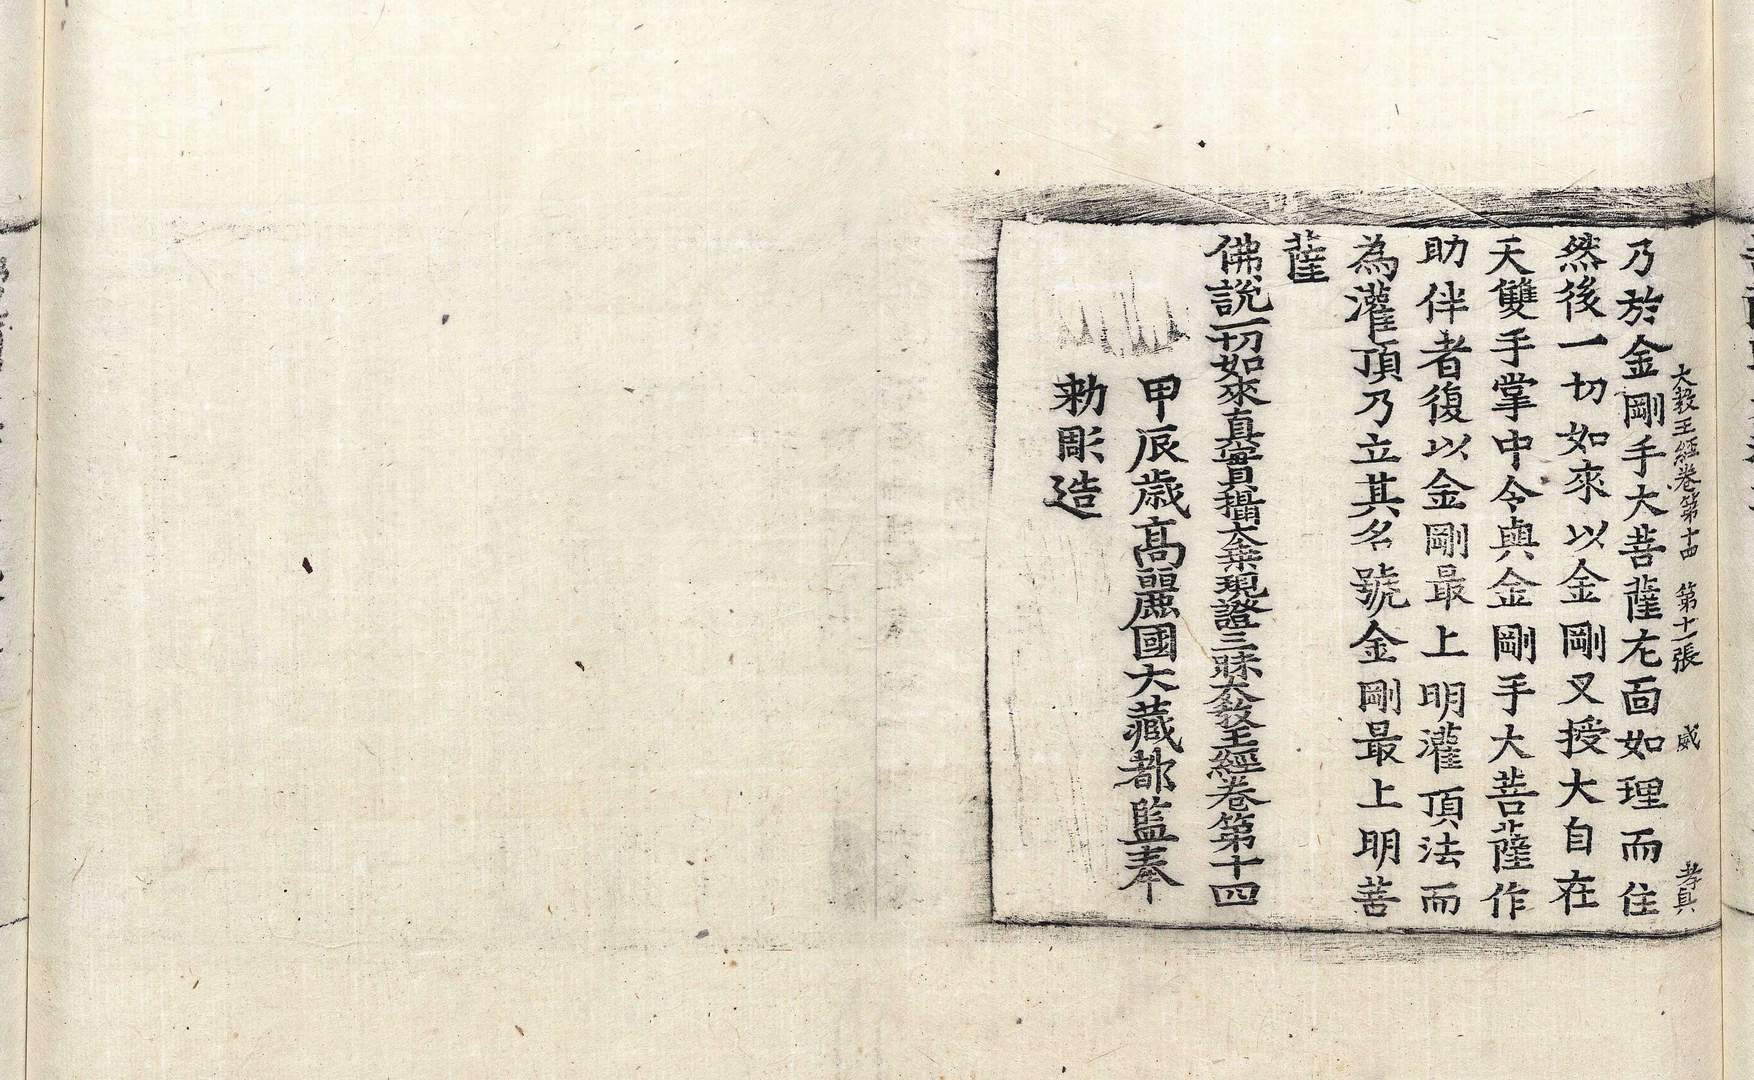 大教王經卷第十四 第十一張 威 孝貞
乃於金剛手大菩薩左面如理而住
然後一切如來以金剛叉授大自在
天雙手掌中令與金剛手大菩薩作
助伴者復以金剛最上明灌頂法而
為灌頂乃立其名號金剛最上明菩
薩
佛說一切如來真實攝大乘現證三昧大教王經卷第十四
甲辰歲高麗國大藏都監奉
勅彫造